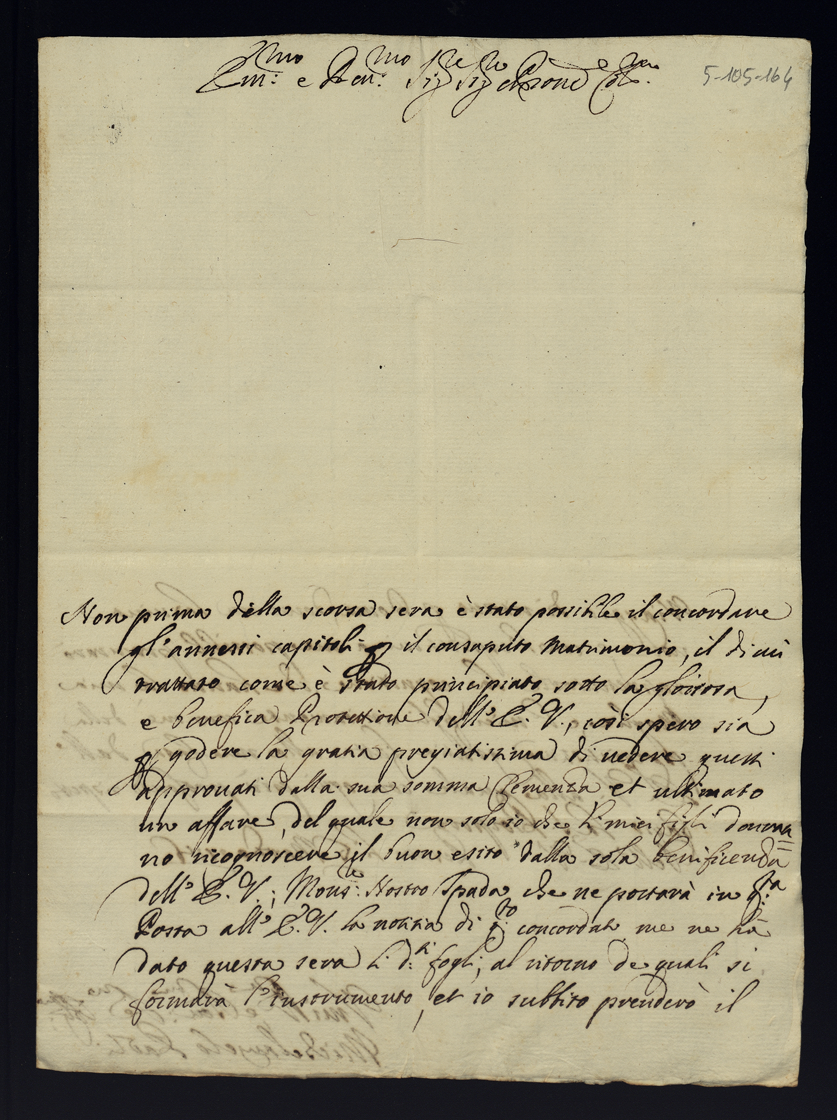 Em:mo e Rev:mo Sig:re Sig:re e Prone Col:mo
5-105-164
Non prima della scorsa sera è stato possibile il concordare
gl'annessi capitoli p il consaputo Matrimonio, il di cui
trattato come è stato principiato sotto la gloriosa,
e benefica Protettione dell'E.V., così spero sia
p godere la gratia pregiatissima di vedere questi
approvati dalla sua somma Clemenza et ultimato
un affare, del quale non solo io che li miei figli doveran=
no ricognoscere il buon esito dalla sola beneficenza
dell'E.V.; Mons:re Nostro Spada che ne portarà in q:ta
Posta all'E.V. la notitia di q:to concordato me ne hà
dato questa sera li d:ti fogli, al ritorno de quali si
formarà l'instrumento, et io subbito prenderò il